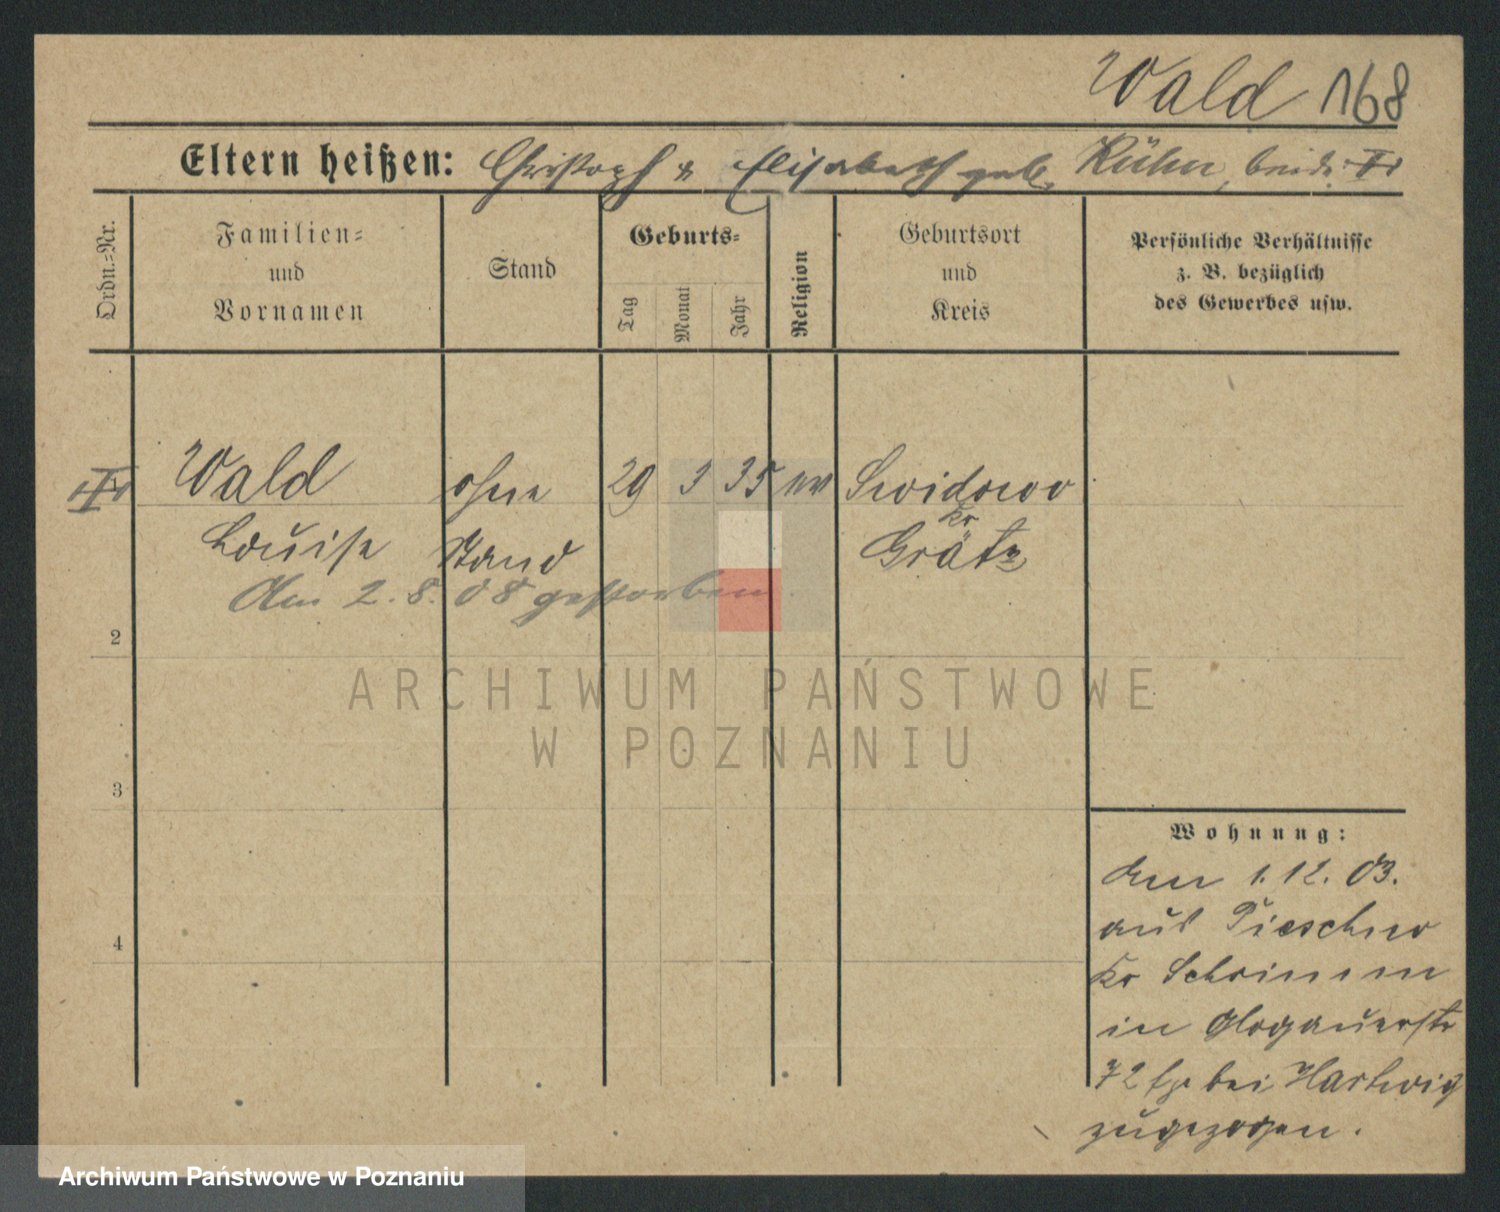 Wald 168
Eltern heißen: Christoph u Elisabeth geb. Kühn, beide
Ordn.=Nr.
Familien=
und
Vornamen
Stand
Geburts=
Tag
Monat
Jahr
Religion
Geburtsort
und
Kreis
Persönliche Verhältnisse
z. B. bezüglich
des Gewerbes usw.
Wald ohne 29 3 35 Swidowo
Louise Stand Kr Grätz
Am 2.8.08 gestorben.
2
3
4
ARCHIWUM PAŃSTWOWE
W POZNANIU
Wohnung:
den 1.12.03.
aus Pieschno? 
Kr Schrimm
in Glogauerstr
72 bei Hartwig
zugezogen.
Archiwum Państwowe w Poznaniu